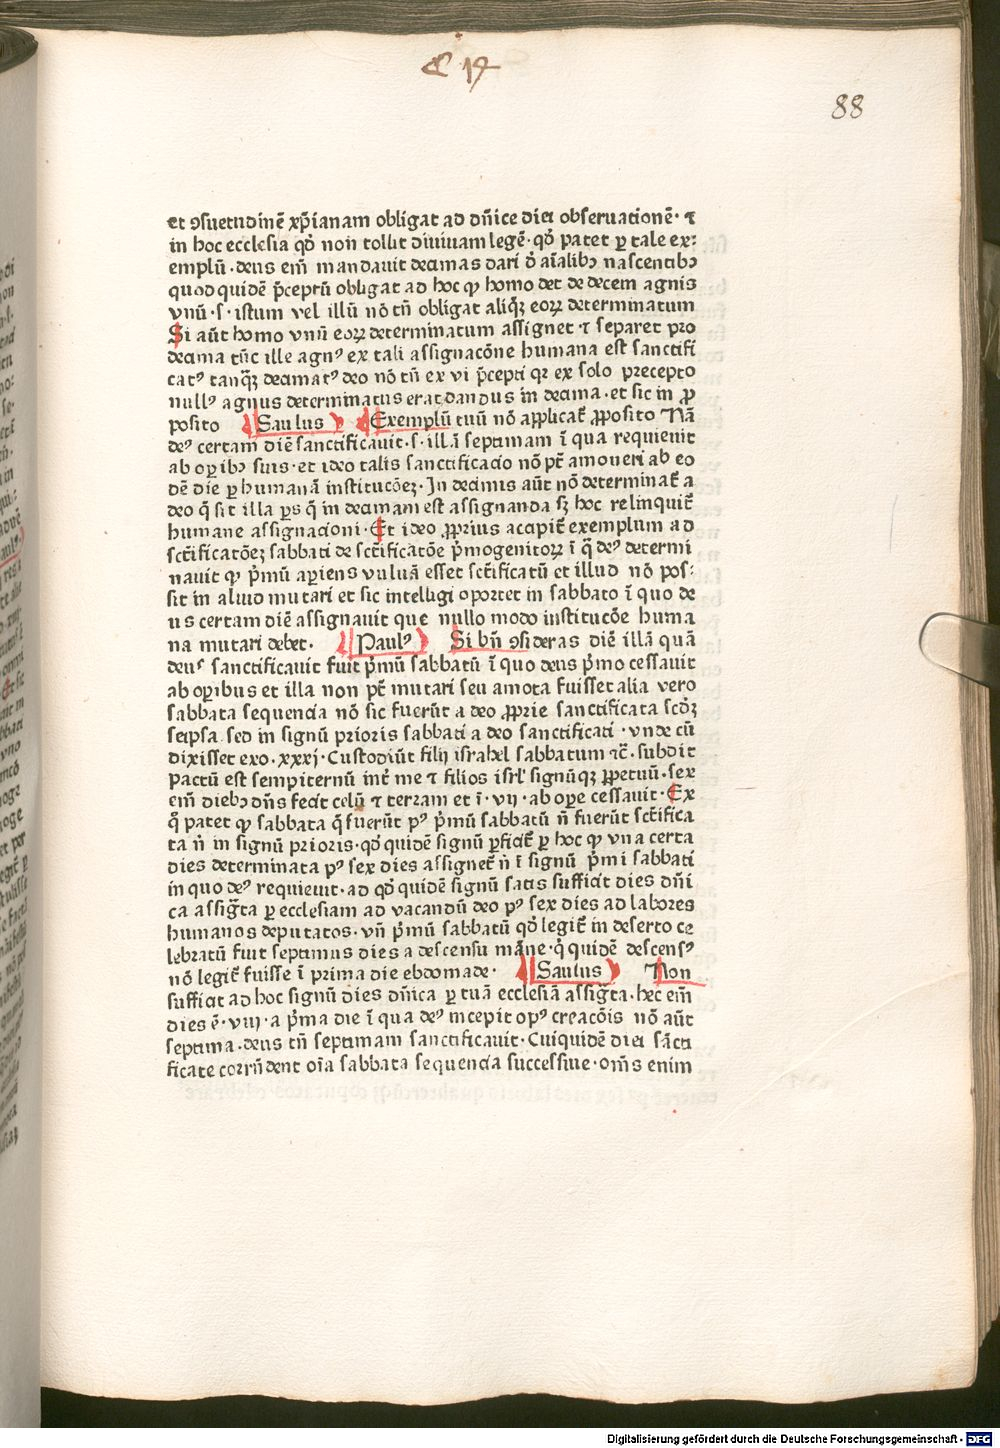 88
et ꝯsuetudinē xp̄ianam obligat ad dn̄ice diei obseruationē · ⁊
in hoc ecclesia qd̄ non tollit diuinam legē · qd̄ patet ꝑ tale ex:
emplū · deus em̄ mandauit decimas dari d̄ aīalibꝰ nascentibꝰ
quod quidē p̄ceptū obligat ad hoc ꝙ homo det de decem agnis
vnū · s · istum vel illū nō tn̄ obligat aliqꝫ eoꝝ determinatum
Si aūt homo vnū eoꝝ determinatum assignet ⁊ separet pro
decima tūc ille agnꝰ ex tali assignacōne humana est sanctifi
catꝰ tanqꝫ decimatꝰ deo nō tn̄ ex vi p̄cepti qꝛ ex solo precepto
nullꝰ agnus determinatus erat dandus in decima · et sic in ꝓ
posito Saulus Exemplū tuū nō applicat̄ ꝓposito Nā
deꝰ certam diē sanctificauit · s · illā septimam ī qua requieuit
ab oꝑibꝰ suis · et ideo talis sanctificacio nō pt̄ amoueri ab eo
dē die ꝑ humanā institucōeꝫ · In decimis aūt nō determinat̄ a
deo q̄ sit illa ꝑs q̄ in decimam est assignanda sꝫ hoc relinquit̄
humane assignacioni · Et ideo ꝓprius accipit̄ exemplum ad
sct̄ificatōeꝫ sabbati de sct̄ificatōe p̄mogenitoꝝ ī q̄ deꝰ determi
nauit ꝙ p̄mū aꝑiens vuluā esset sct̄ificatū et illud nō pos-
sit in aliud mutari et sic intelligi oportet in sabbato ī quo de
us certam diē assignauit que nullo modo institucōe huma
na mutari debet · Paulꝰ Si bn̄ ꝯsideras diē illā quā
deus sanctificauit fuit p̄mū sabbatū ī quo deus p̄mo cessauit
ab oꝑibus et illa non pt̄ mutari seu amota fuisset alia vero
sabbata sequencia nō sic fuerūt a deo ꝓprie sanctificata scd̄ꝫ
seipsa sed in signū prioris sabbati a deo sanctificati · vnde cū
dixisset exo · xxxj · Custodiūt filij israhel sabbatum ⁊c̄ · subdit
pactū est sempiternū int̄ me ⁊ filios isrl̄ signūqꝫ ꝑpetuū · sex
em̄ diebꝰ dn̄s fecit celū ⁊ terram et ī · vij · ab oꝑe cessauit · Ex
q̄ patet ꝙ sabbata q̄ fuerūt pꝰ p̄mū sabbatū n̄ fuerūt sct̄ifica
ta n̄ in signū prioris · qd̄ quidē signū ꝑficit̄ ꝑ hoc ꝙ vna certa
dies determinata pꝰ sex dies assignet̄ n̄ ī signū p̄mi sabbati
in quo deꝰ requieuit · ad qd̄ quidē signū satis sufficit dies dn̄i
ca assig̅ta ꝑ ecclesiam ad vacandū deo pꝰ sex dies ad labores
humanos deputatos · vn̄ p̄mū sabbatū qd̄ legit̄ in deserto ce
lebratū fuit septimus dies a descensu māne · q̄ quidē descensꝰ
nō legit̄ fuisse ī prima die ebdomade · Saulus Non
sufficit ad hoc signū dies dn̄ica ꝑ tuā ecclesiā assig̅ta · hec em̄
dies ē · viij · a p̄ma die ī qua deꝰ incepit opꝰ creacōis nō aūt
septima · deus tn̄ septimam sanctificauit · Cuiquidē diei sācti
ficate corrn̄dent oīa sabbata sequencia successiue · om̄s enim
Digitalisierung gefördert durch die Deutsche Forschungsgemeinschaft - DFG